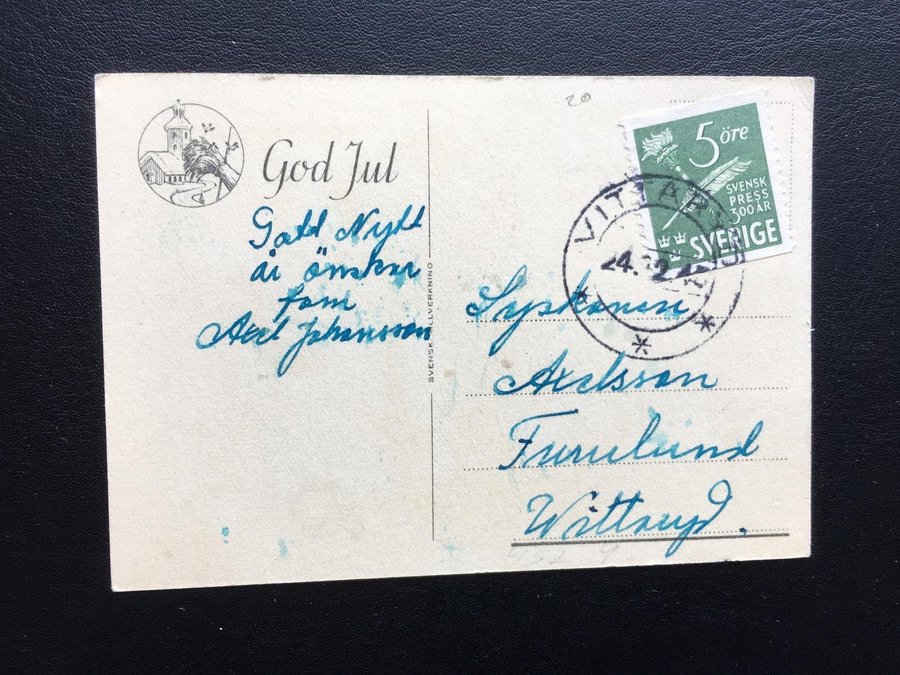 God Jul
Gott Nytt
år önskar
fam
Axel Johansson
SVENSK TILLVERKNING
20
5 öre
SVENSK
PRESS
300 ÅR
SVERIGE
VITTARYD
24.12.45
Syskonen
Axelsson
Furulund
Wittaryd.